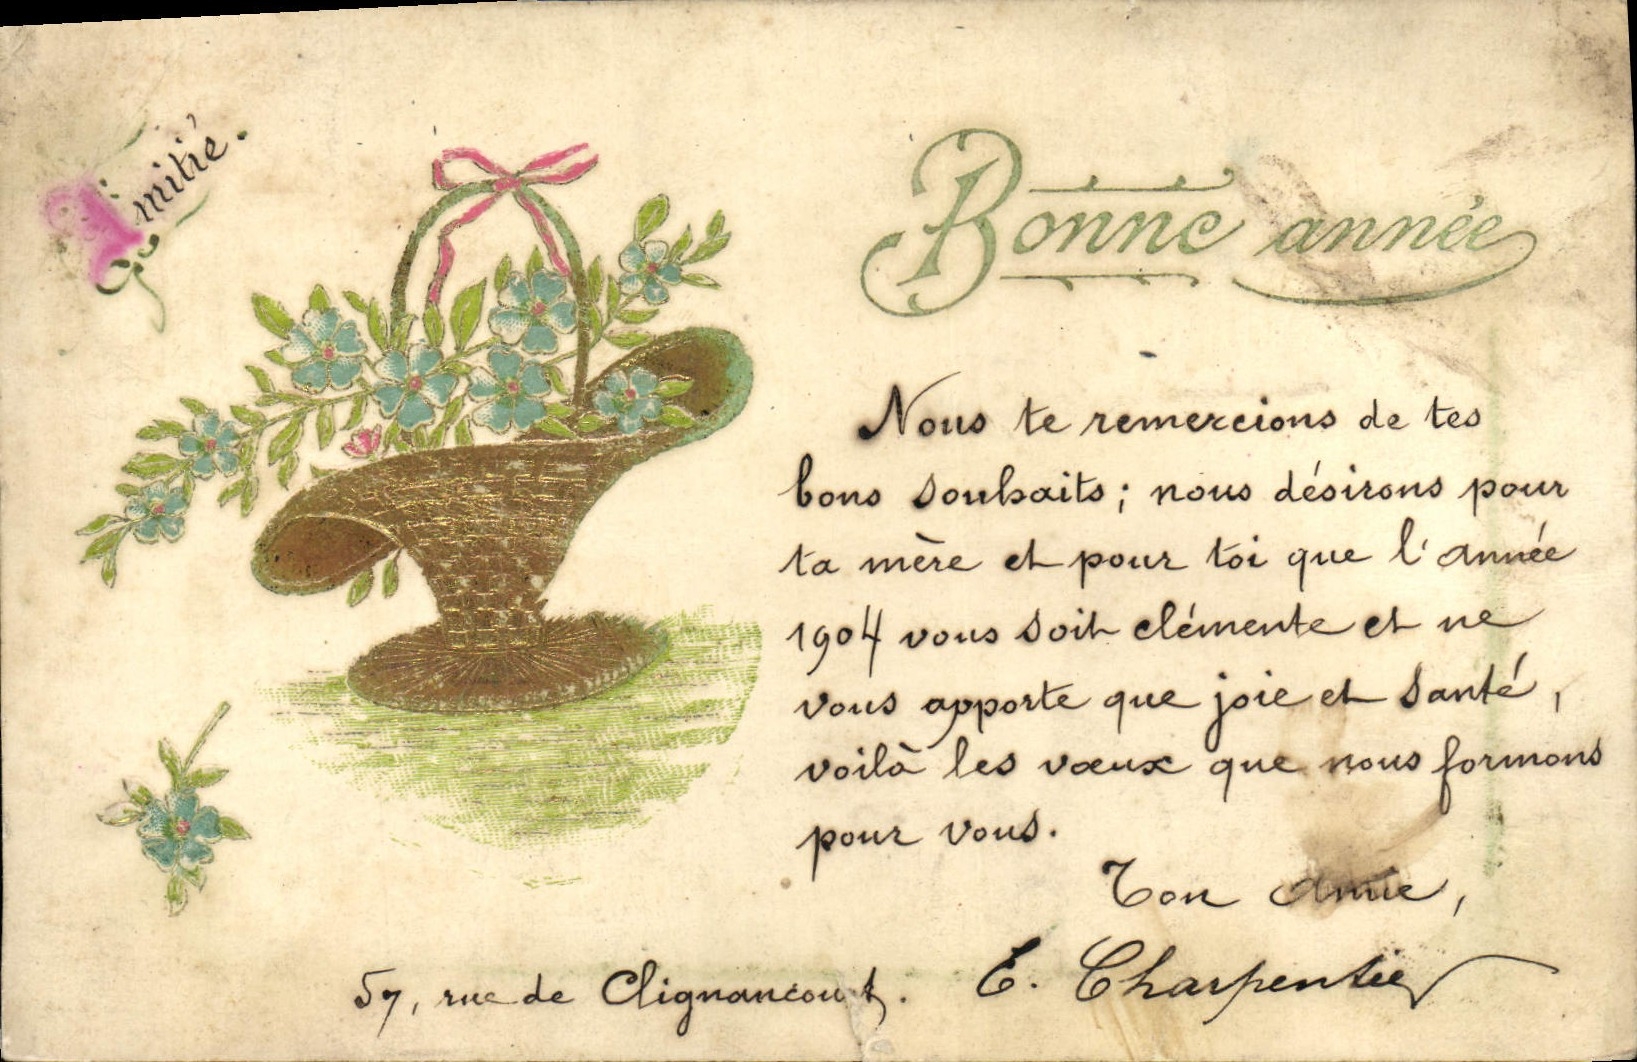 Amitié.
Bonne année
Nous te remercions de tes
bons souhaits ; nous désirons pour
ta mère et pour toi que l'année
1904 vous soit clémente et ne
vous apporte que joie et santé,
voilà les vœux que nous formons
pour vous.
Ton amie,
57, rue de Clignancourt. E. Charpentier